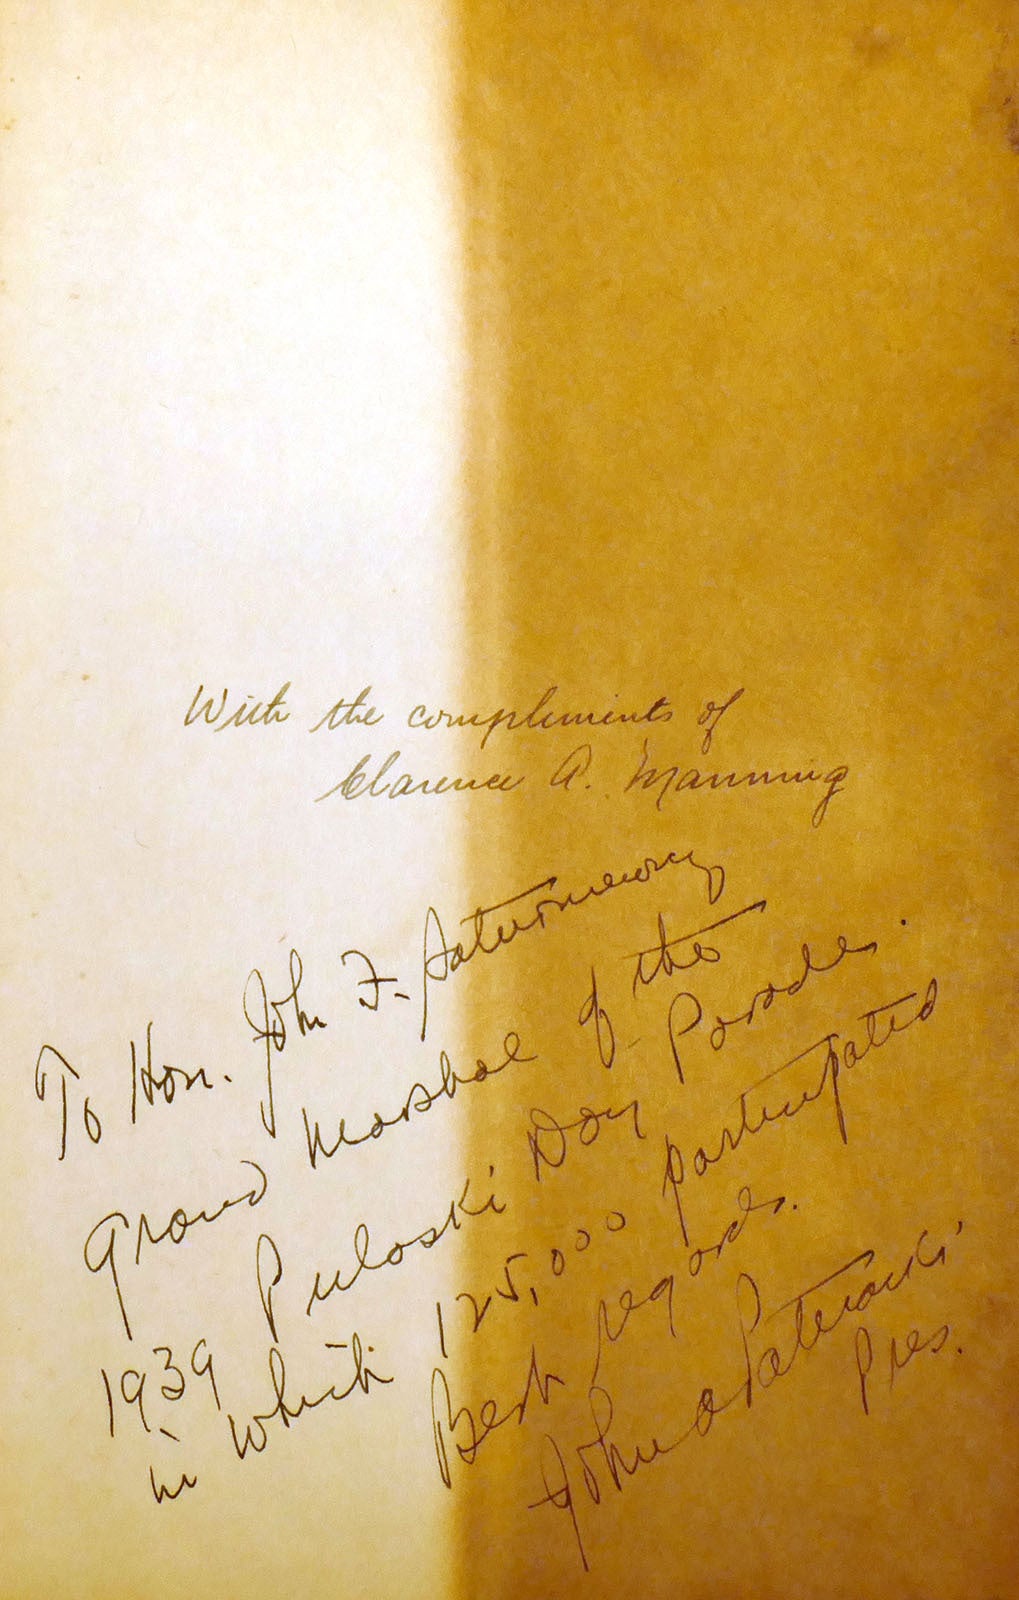 With the compliments of
Clarence A. Manning
To Hon. John F.
Grand Marshal of the
1939 Pulaski Day Parade.
in which 125,000 participated
Best regards.
John A Pateracki
Pres.